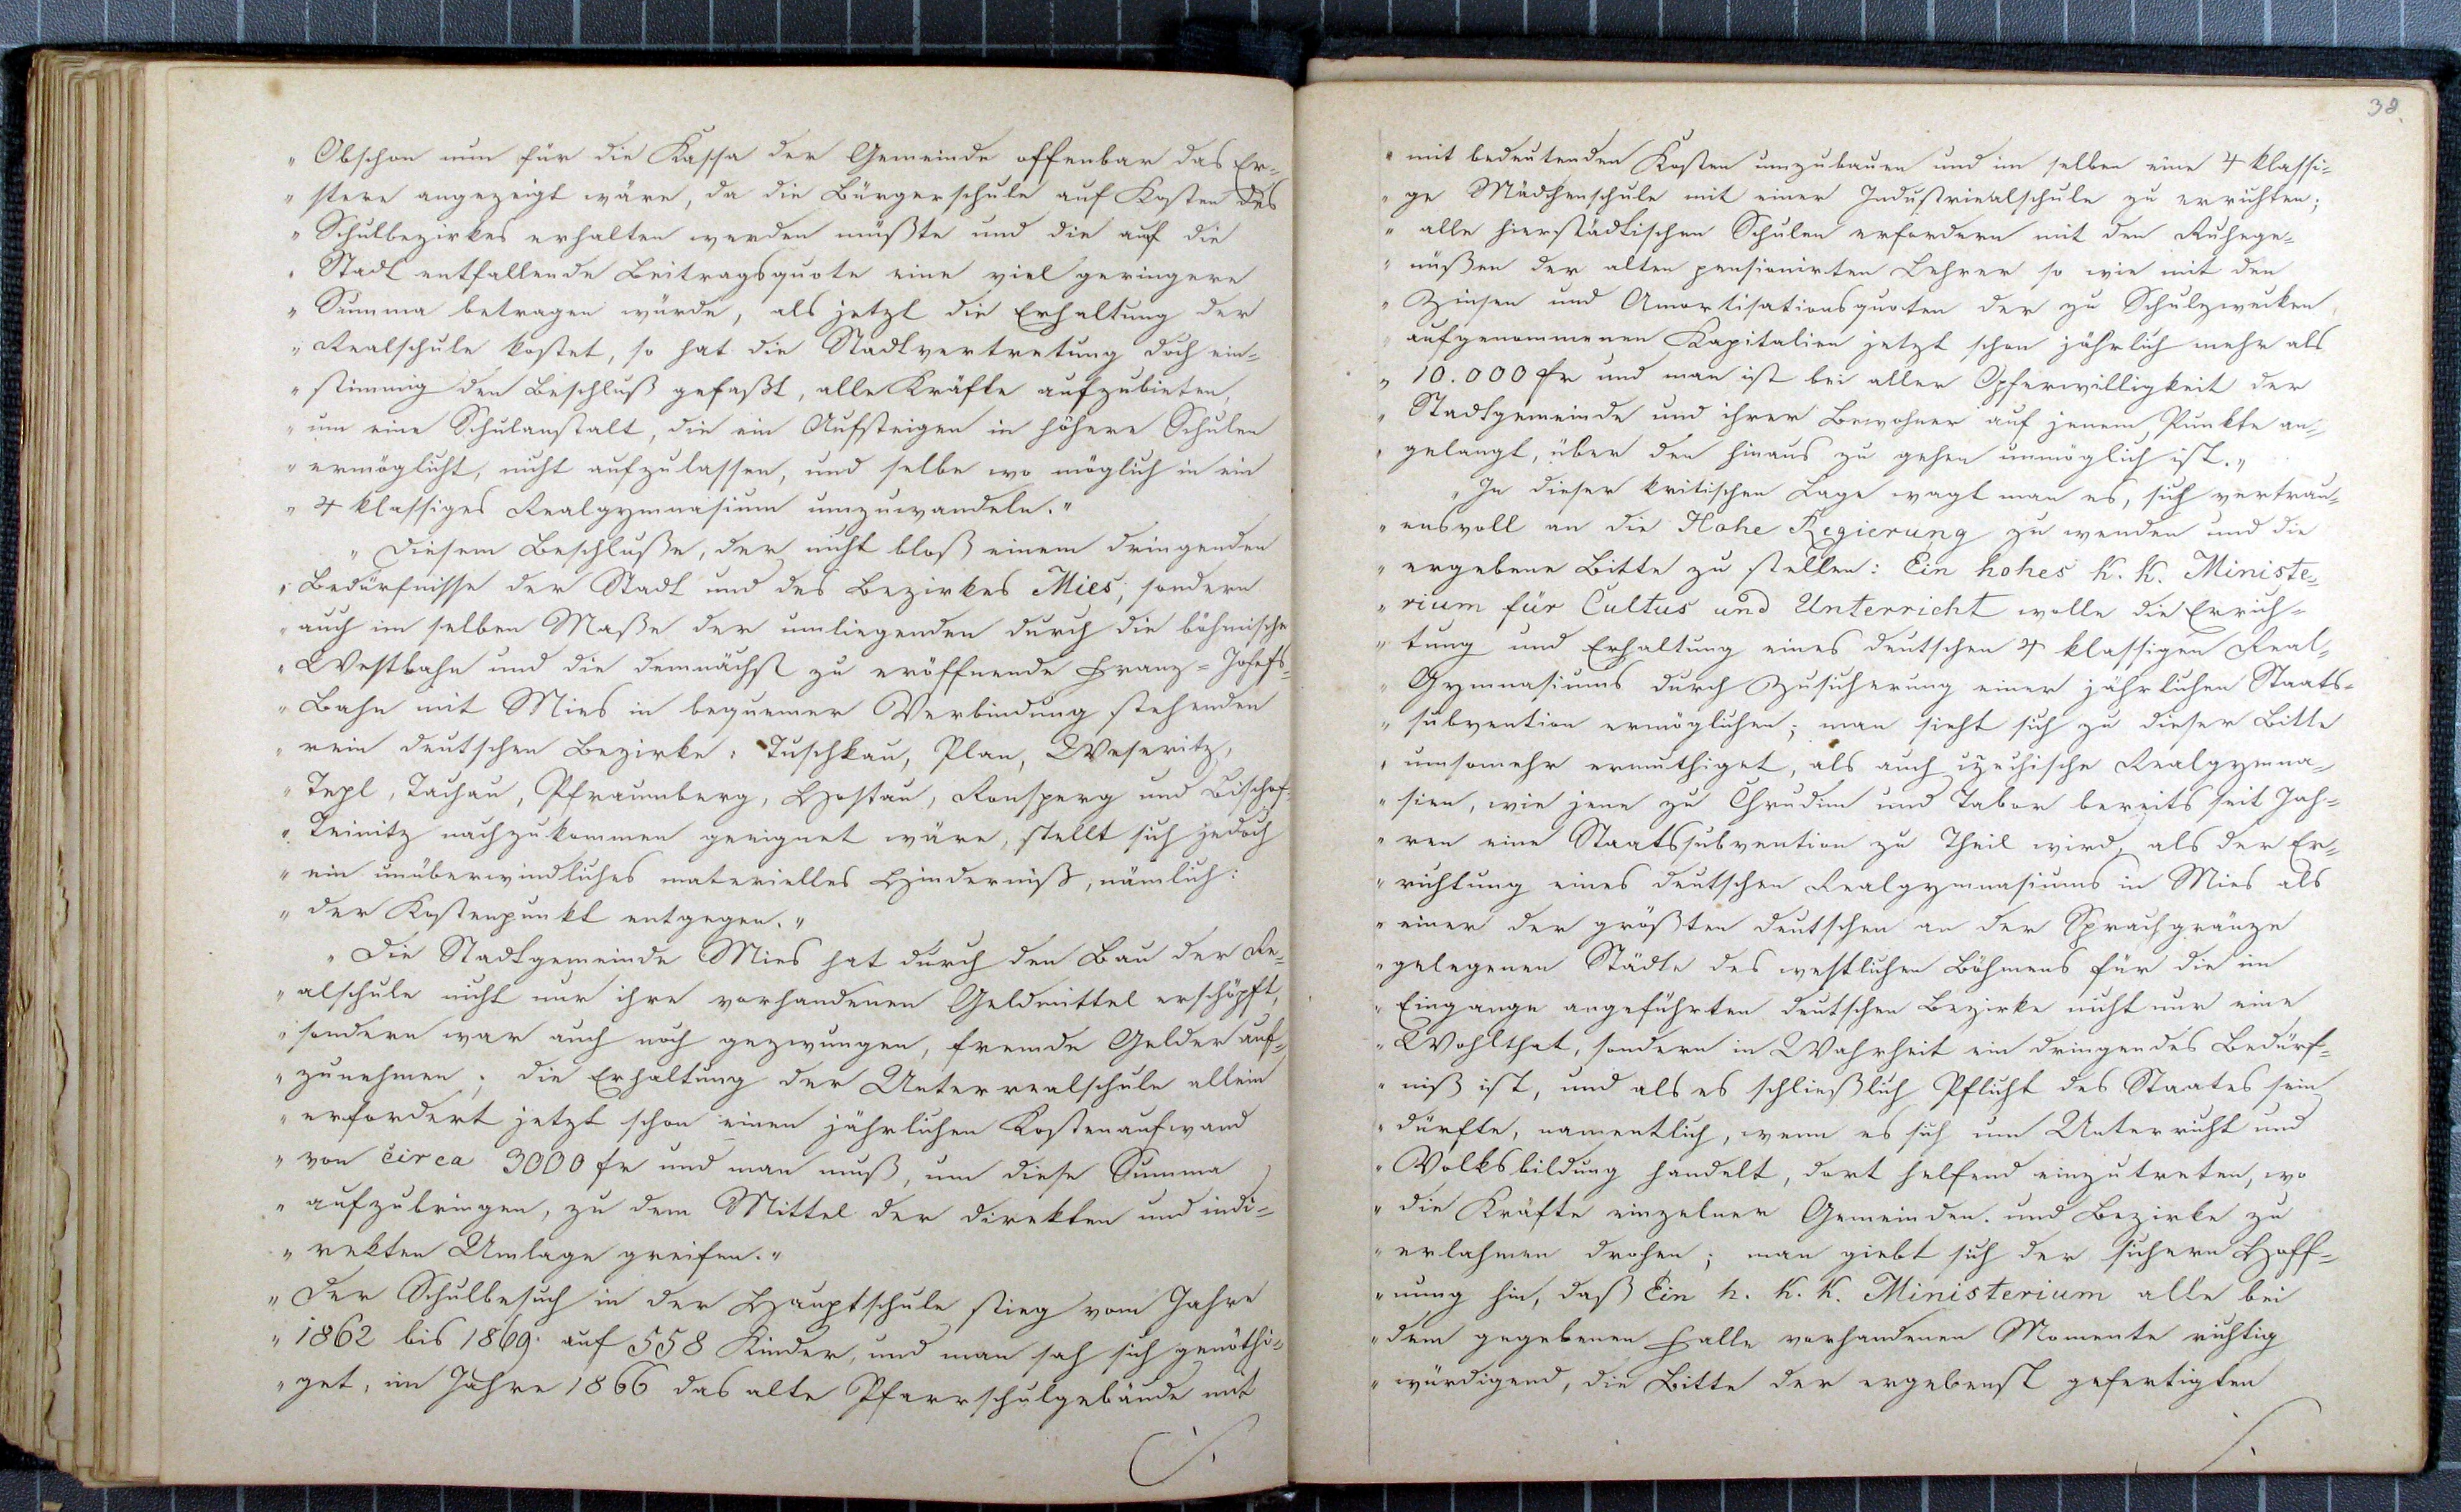 „ Obschon nun für die Kassa der Gemeinde offenbar das Er-
„ stere angezeigt wäre, da die Bürgerschule auf Kosten des
„ Schulbezirkes erhalten werden müßte und die auf die
„ Stadt entfallende Beitragsquote eine viel geringere
„ Summa betragen würde, als jetzt die Erhaltung der
„ Realschule kostet, so hat die Stadtvertretung doch ein-
„ stimmig den Beschluß gefaßt, alle Kräfte aufzubieten,
„ um eine Schulanstalt, die ein Aufsteigen in höhere Schulen
„ ermöglicht, nicht aufzulassen, und selbe wo möglich in ein
„ 4 klassiges Realgymnasium umzuwandeln."
„ Diesem Beschluße, der nicht bloß einem dringenden
„ Bedürfnisse der Stadt und des Bezirkes Mies, sondern
„ auch im selben Maße der umliegenden durch die böhmische
„ Westbahn und die demnächst zu eröffnende Franz-Josefs-
„ Bahn mit Mies in bequemer Verbindung stehenden
„ rein deutschen Bezirke: Tuschkau, Plan, Weseritz,
„ Tepl, Tachau, Pfraumberg, Hostau, Ronsperg und Bischof-
„ Teinitz nachzukommen geeignet wäre, stellt sich jedoch
„ ein unüberwindliches materielles Hinderniß, nämlich:
„ der Kostenpunkt entgegen."
„ Die Stadtgemeinde Mies hat durch den Bau der Re-
„ alschule nicht nur ihre vorhandenen Geldmittel erschöpft,
„ sondern war auch noch gezwungen, fremde Gelder auf-
„ zunehmen; die Erhaltung der Unterrealschule allein
„ erfordert jetzt schon einen jährlichen Kostenaufwand
„ von circa 3000 fr und man muß, um diese Summa
„ aufzubringen, zu dem Mittel der direkten und indi-
„ rekten Umlage greifen."
„ Der Schulbesuch in der Hauptschule stieg vom Jahre
„ 1862 bis 1869 auf 558 Kinder, und man sah sich genöthi-
„ get, im Jahre 1866 das alte Pfarrschulgebäude mit
38.
„ mit bedeutenden Kosten umzubauen und im selben eine 4 klassi-
„ ge Mädchenschule mit einer Industrialschule zu errichten;
„ alle hierstädtischen Schulen erfordern mit den Ruhege-
„ nüßen der alten pensionirten Lehrer so wie mit den
„ Zinsen und Amortisationsquoten der zu Schulzwecken
„ aufgenommenen Kapitalien jetzt schon jährlich mehr als
„ 10.000 fr und man ist bei aller Opferwilligkeit der
„ Stadtgemeinde und ihrer Bewohner auf jenem Punkte an-
„ gelangt, über den hinaus zu gehen unmöglich ist."
„ In dieser kritischen Lage wagt man es, sich vertrau-
„ ensvoll an die Hohe Regierung zu wenden und die
„ ergebene Bitte zu stellen: Ein hohes k. k. Ministe-
„ rium für Cultus und Unterricht wolle die Errich-
„ tung und Erhaltung eines deutschen 4 klassigen Real-
„ Gymnasiums durch Zusicherung einer jährlichen Staats-
„ subvention ermöglichen; man sieht sich zu dieser Bitte
„ umsomehr ermuthiget, als auch czechische Realgymna-
„ sien, wie jene zu Chrudim und Tabor bereits seit Jah-
„ ren eine Staatssubvention zu Theil wird, als der Er-
„ richtung eines deutschen Realgymnasiums in Mies als
„ einer der größten deutschen an der Sprachgränze
„ gelegenen Städte des westlichen Böhmens für die im
„ Eingange angeführten deutschen Bezirke nicht nur eine
„ Wohlthat, sondern in Wahrheit ein dringendes Bedürf-
„ niß ist, und als es schließlich Pflicht des Staates sein
„ dürfte, namentlich, wenn es sich um Unterricht und
„ Volksbildung handelt, dort helfend einzutreten, wo
„ die Kräfte einzelner Gemeinden und Bezirke zu
„ erlahmen drohen; man giebt sich der sichern Hoff-
„ nung hin, daß Ein h. k. k. Ministerium alle bei
„ dem gegebenen Falle vorhandenen Momente richtig
„ würdigend, die Bitte der ergebenst gefertigten